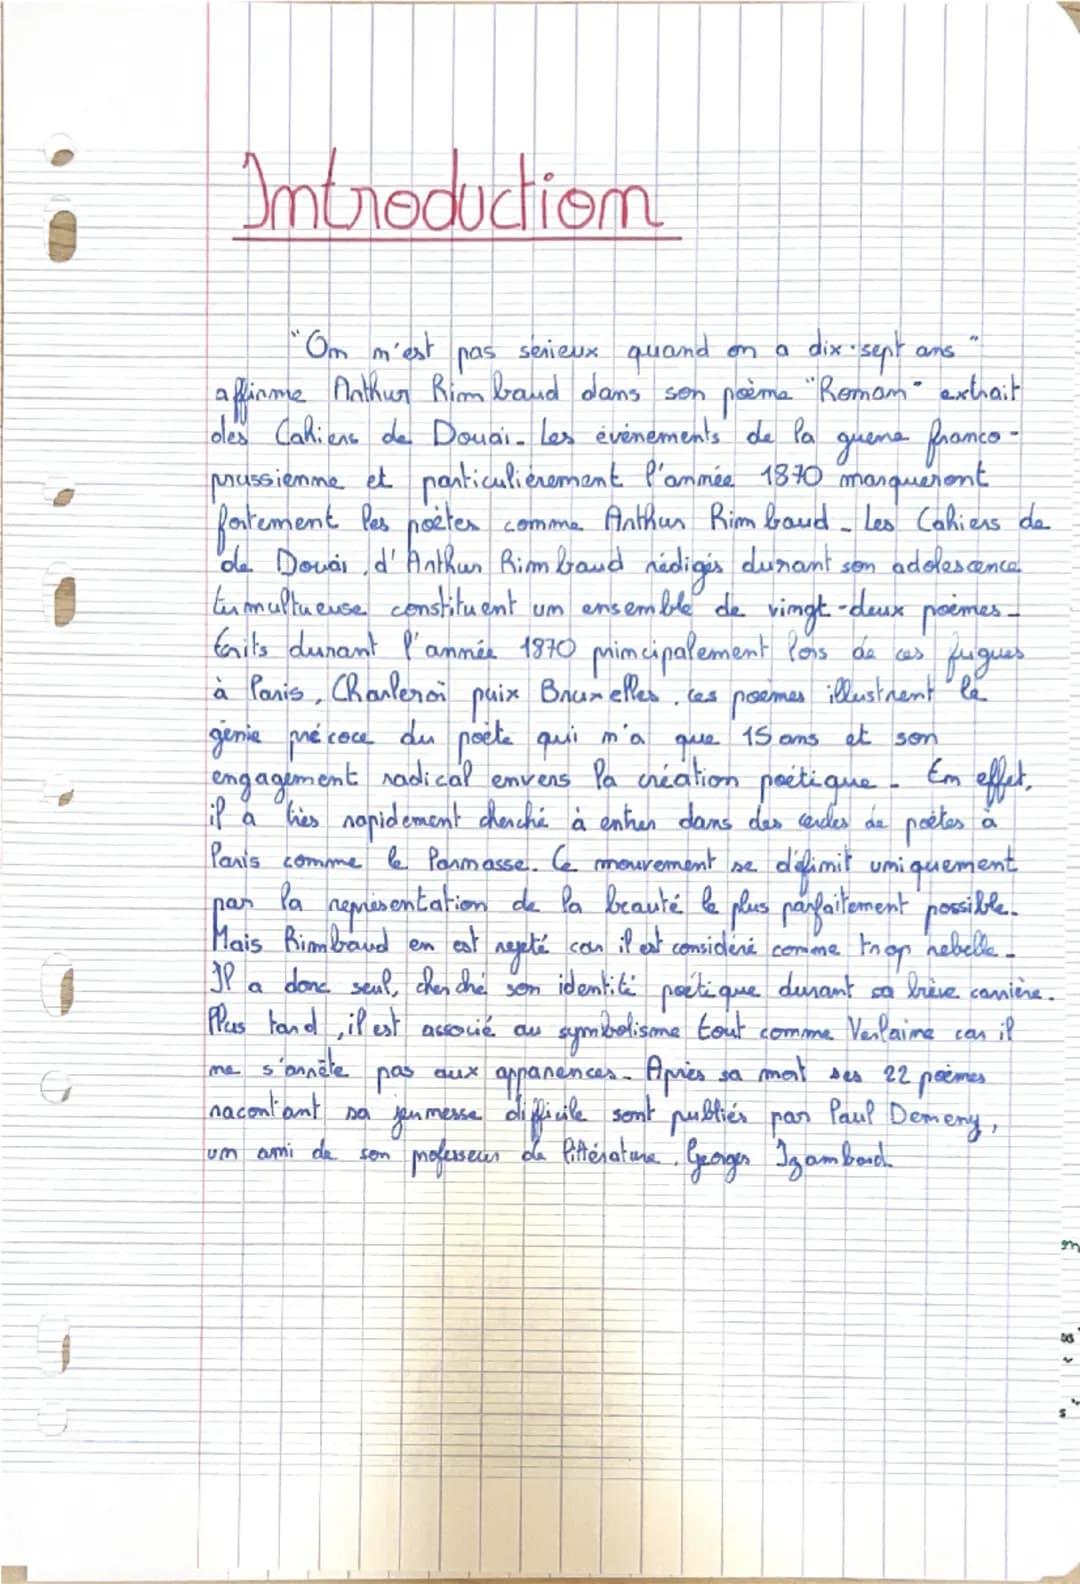 Introduction
"On n'est pas sérieux quand on a dix-sept ans"
affirme Arthur Rimbaud dans son poème "Roman" extrait
des Cahiers de Douai. Les événements de la guerre franco-
prussienne et particulièrement l'année 1870 marqueront
fortement les poètes comme Arthur Rimbaud. Les Cahiers de
de Douai, d'Arthur Rimbaud rédigés durant son adolescence
tumultueuse constituent un ensemble de vingt-deux poèmes.
Ecrits durant l'année 1870 principalement lors de ces fugues
à Paris, Charleroi puix Bruxelles, ces poèmes illustrent le
génie précoce du poète qui n'a que 15 ans et son
engagement radical envers la création poétique. En effet,
il a très rapidement cherché à entrer dans des cercles de poètes à
Paris comme le Parnasse. Ce mouvement se définit uniquement
par la représentation de la beauté le plus parfaitement possible.
Mais Rimbaud en est rejeté car il est considéré comme trop rebelle.
Il a donc seul, cherché son identité poétique durant sa brève carrière.
Plus tard, il est associé au symbolisme tout comme Verlaine car il
ne s'arrête pas aux apparences. Après sa mort ses 22 poèmes
racontant sa jeunesse difficile sont publiés par Paul Demeny,
un ami de son professeur de littérature, Georges Izambard.